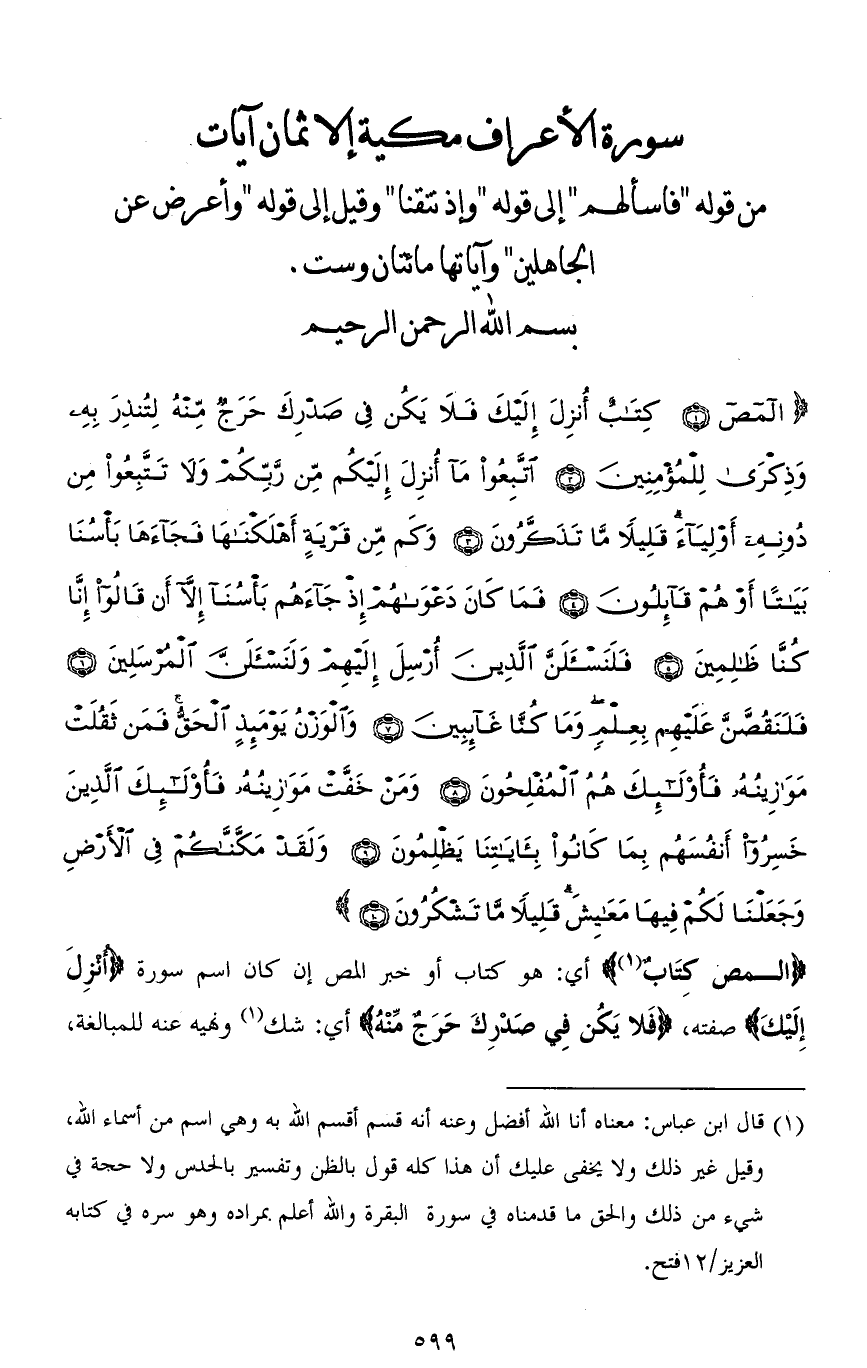 سورة الأعراف مكية إلا ثمان آيات
من قوله "فاسألهم" إلى قوله "وإذ نتقنا" وقيل إلى قوله "وأعرض عن
الجاهلين" وآياتها مائتان وست .
بسم الله الرحمن الرحيم
﴿ الٓمٓصٓ ۝١ كِتَٰبٌ أُنزِلَ إِلَيْكَ فَلَا يَكُن فِى صَدْرِكَ حَرَجٌ مِّنْهُ لِتُنذِرَ بِهِۦ
وَذِكْرَىٰ لِلْمُؤْمِنِينَ ۝٢ ٱتَّبِعُوا۟ مَآ أُنزِلَ إِلَيْكُم مِّن رَّبِّكُمْ وَلَا تَتَّبِعُوا۟ مِن
دُونِهِۦٓ أَوْلِيَآءَ ۗ قَلِيلًا مَّا تَذَكَّرُونَ ۝٣ وَكَم مِّن قَرْيَةٍ أَهْلَكْنَٰهَا فَجَآءَهَا بَأْسُنَا
بَيَٰتًا أَوْ هُمْ قَآئِلُونَ ۝٤ فَمَا كَانَ دَعْوَىٰهُمْ إِذْ جَآءَهُم بَأْسُنَآ إِلَّآ أَن قَالُوٓا۟ إِنَّا
كُنَّا ظَٰلِمِينَ ۝٥ فَلَنَسْـَٔلَنَّ ٱلَّذِينَ أُرْسِلَ إِلَيْهِمْ وَلَنَسْـَٔلَنَّ ٱلْمُرْسَلِينَ ۝٦
فَلَنَقُصَّنَّ عَلَيْهِم بِعِلْمٍ ۖ وَمَا كُنَّا غَآئِبِينَ ۝٧ وَٱلْوَزْنُ يَوْمَئِذٍ ٱلْحَقُّ ۚ فَمَن ثَقُلَتْ
مَوَٰزِينُهُۥ فَأُو۟لَٰٓئِكَ هُمُ ٱلْمُفْلِحُونَ ۝٨ وَمَنْ خَفَّتْ مَوَٰزِينُهُۥ فَأُو۟لَٰٓئِكَ ٱلَّذِينَ
خَسِرُوٓا۟ أَنفُسَهُم بِمَا كَانُوا۟ بِـَٔايَٰتِنَا يَظْلِمُونَ ۝٩ وَلَقَدْ مَكَّنَّٰكُمْ فِى ٱلْأَرْضِ
وَجَعَلْنَا لَكُمْ فِيهَا مَعَٰيِشَ ۗ قَلِيلًا مَّا تَشْكُرُونَ ۝١٠ ﴾
﴿المص كِتَابٌ(١)﴾ أي: هو كتاب أو خبر المص إن كان اسم سورة ﴿أُنْزِلَ
إِلَيْكَ﴾ صفته، ﴿فَلا يَكُن فِي صَدْرِكَ حَرَجٌ مِّنْهُ﴾ أي: شك(١) ونهيه عنه للمبالغة،
(١) قال ابن عباس: معناه أنا الله أفضل وعنه أنه قسم أقسم الله به وهي اسم من أسماء الله،
وقيل غير ذلك ولا يخفى عليك أن هذا كله قول بالظن وتفسير بالحدس ولا حجة في
شيء من ذلك والحق ما قدمناه في سورة البقرة والله أعلم بمراده وهو سره في كتابه
العزيز/١٢فتح.
٥٩٩